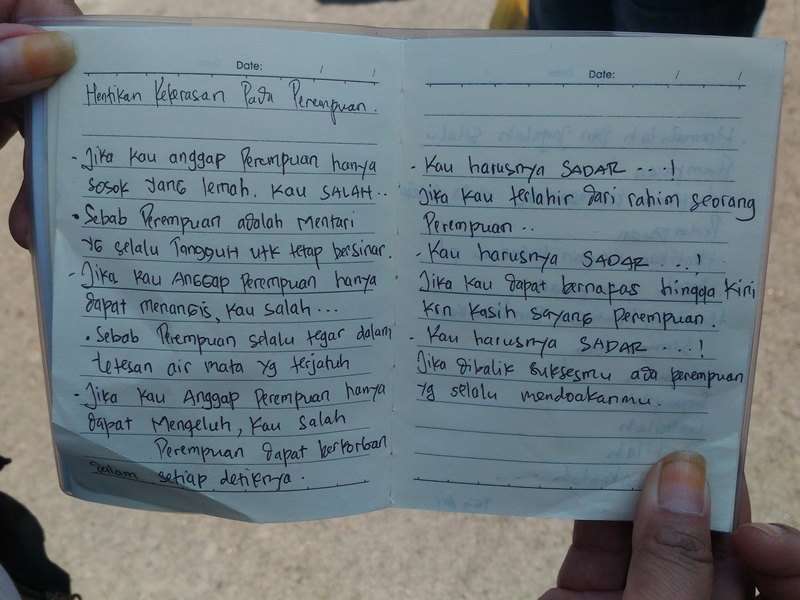 Date: / /
Hentikan Kekerasan Pada Perempuan.
- Jika kau anggap Perempuan hanya
sosok yang lemah. Kau SALAH..
• Sebab Perempuan adalah Mentari
yg selalu Tangguh utk tetap bersinar.
- Jika kau Anggap Perempuan hanya
dapat menangis, kau salah...
• Sebab Perempuan selalu tegar dalam
tetesan air mata yg terjatuh
- Jika kau Anggap Perempuan hanya
dapat Mengeluh, Kau Salah
Perempuan dapat berkorban
dalam setiap detiknya.
Date: / /
- Kau harusnya SADAR ...!
Jika kau terlahir dari rahim seorang
Perempuan..
- Kau harusnya SADAR ...!
Jika kau dapat bernapas hingga kini
krn kasih sayang perempuan.
- Kau harusnya SADAR ...!
Jika dibalik suksesmu ada perempuan
yg selalu mendoakanmu.